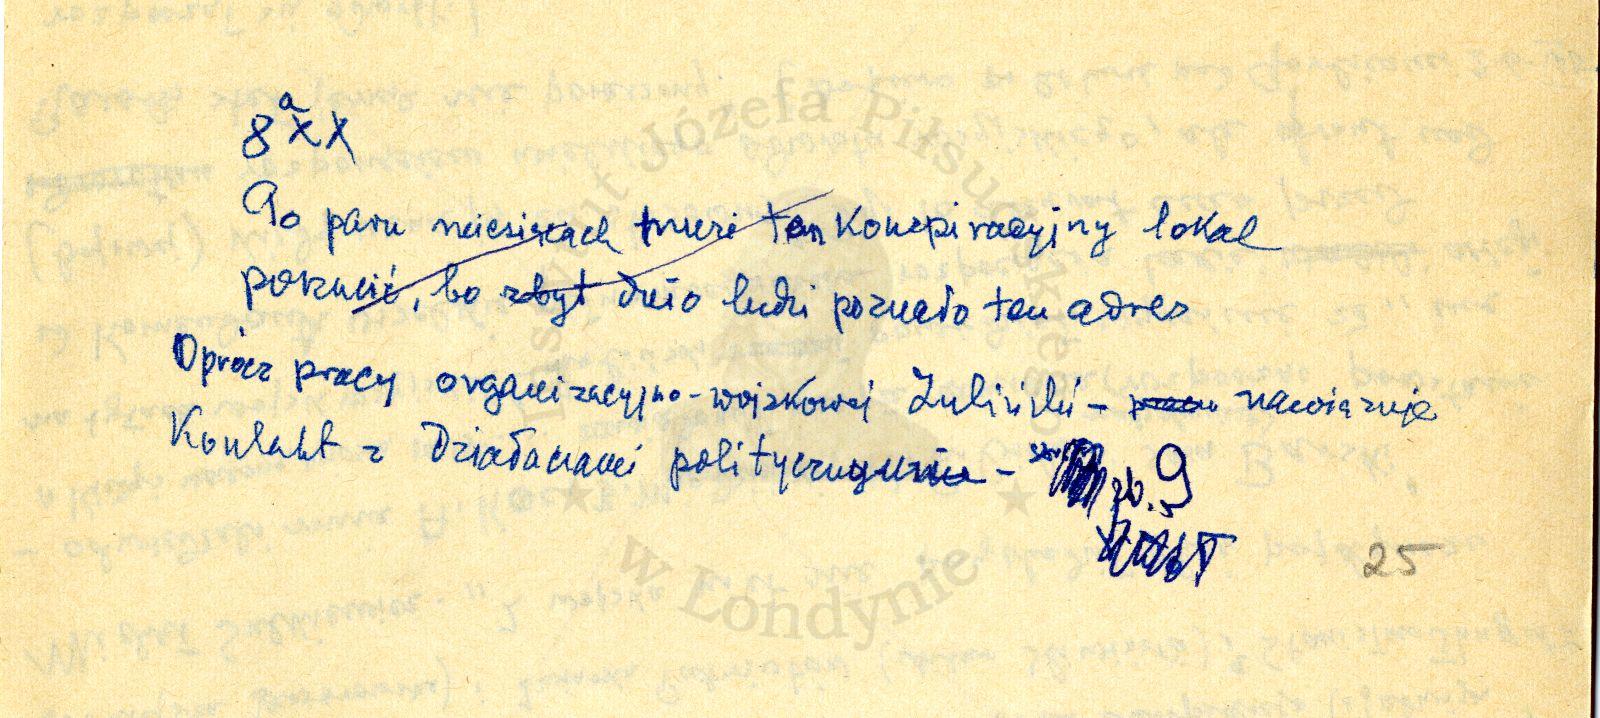 8a XX
Po paru miesiącach musi ten konspiracyjny lokal
porzucić, bo zbyt dużo ludzi poznało ten adres
Oprócz pracy organizacyjno-wojskowej Żuliński - nawiązuje
kontakt z Działaczami politycznymi - str. 9
25
Instytut Józefa Piłsudskiego
w Londynie